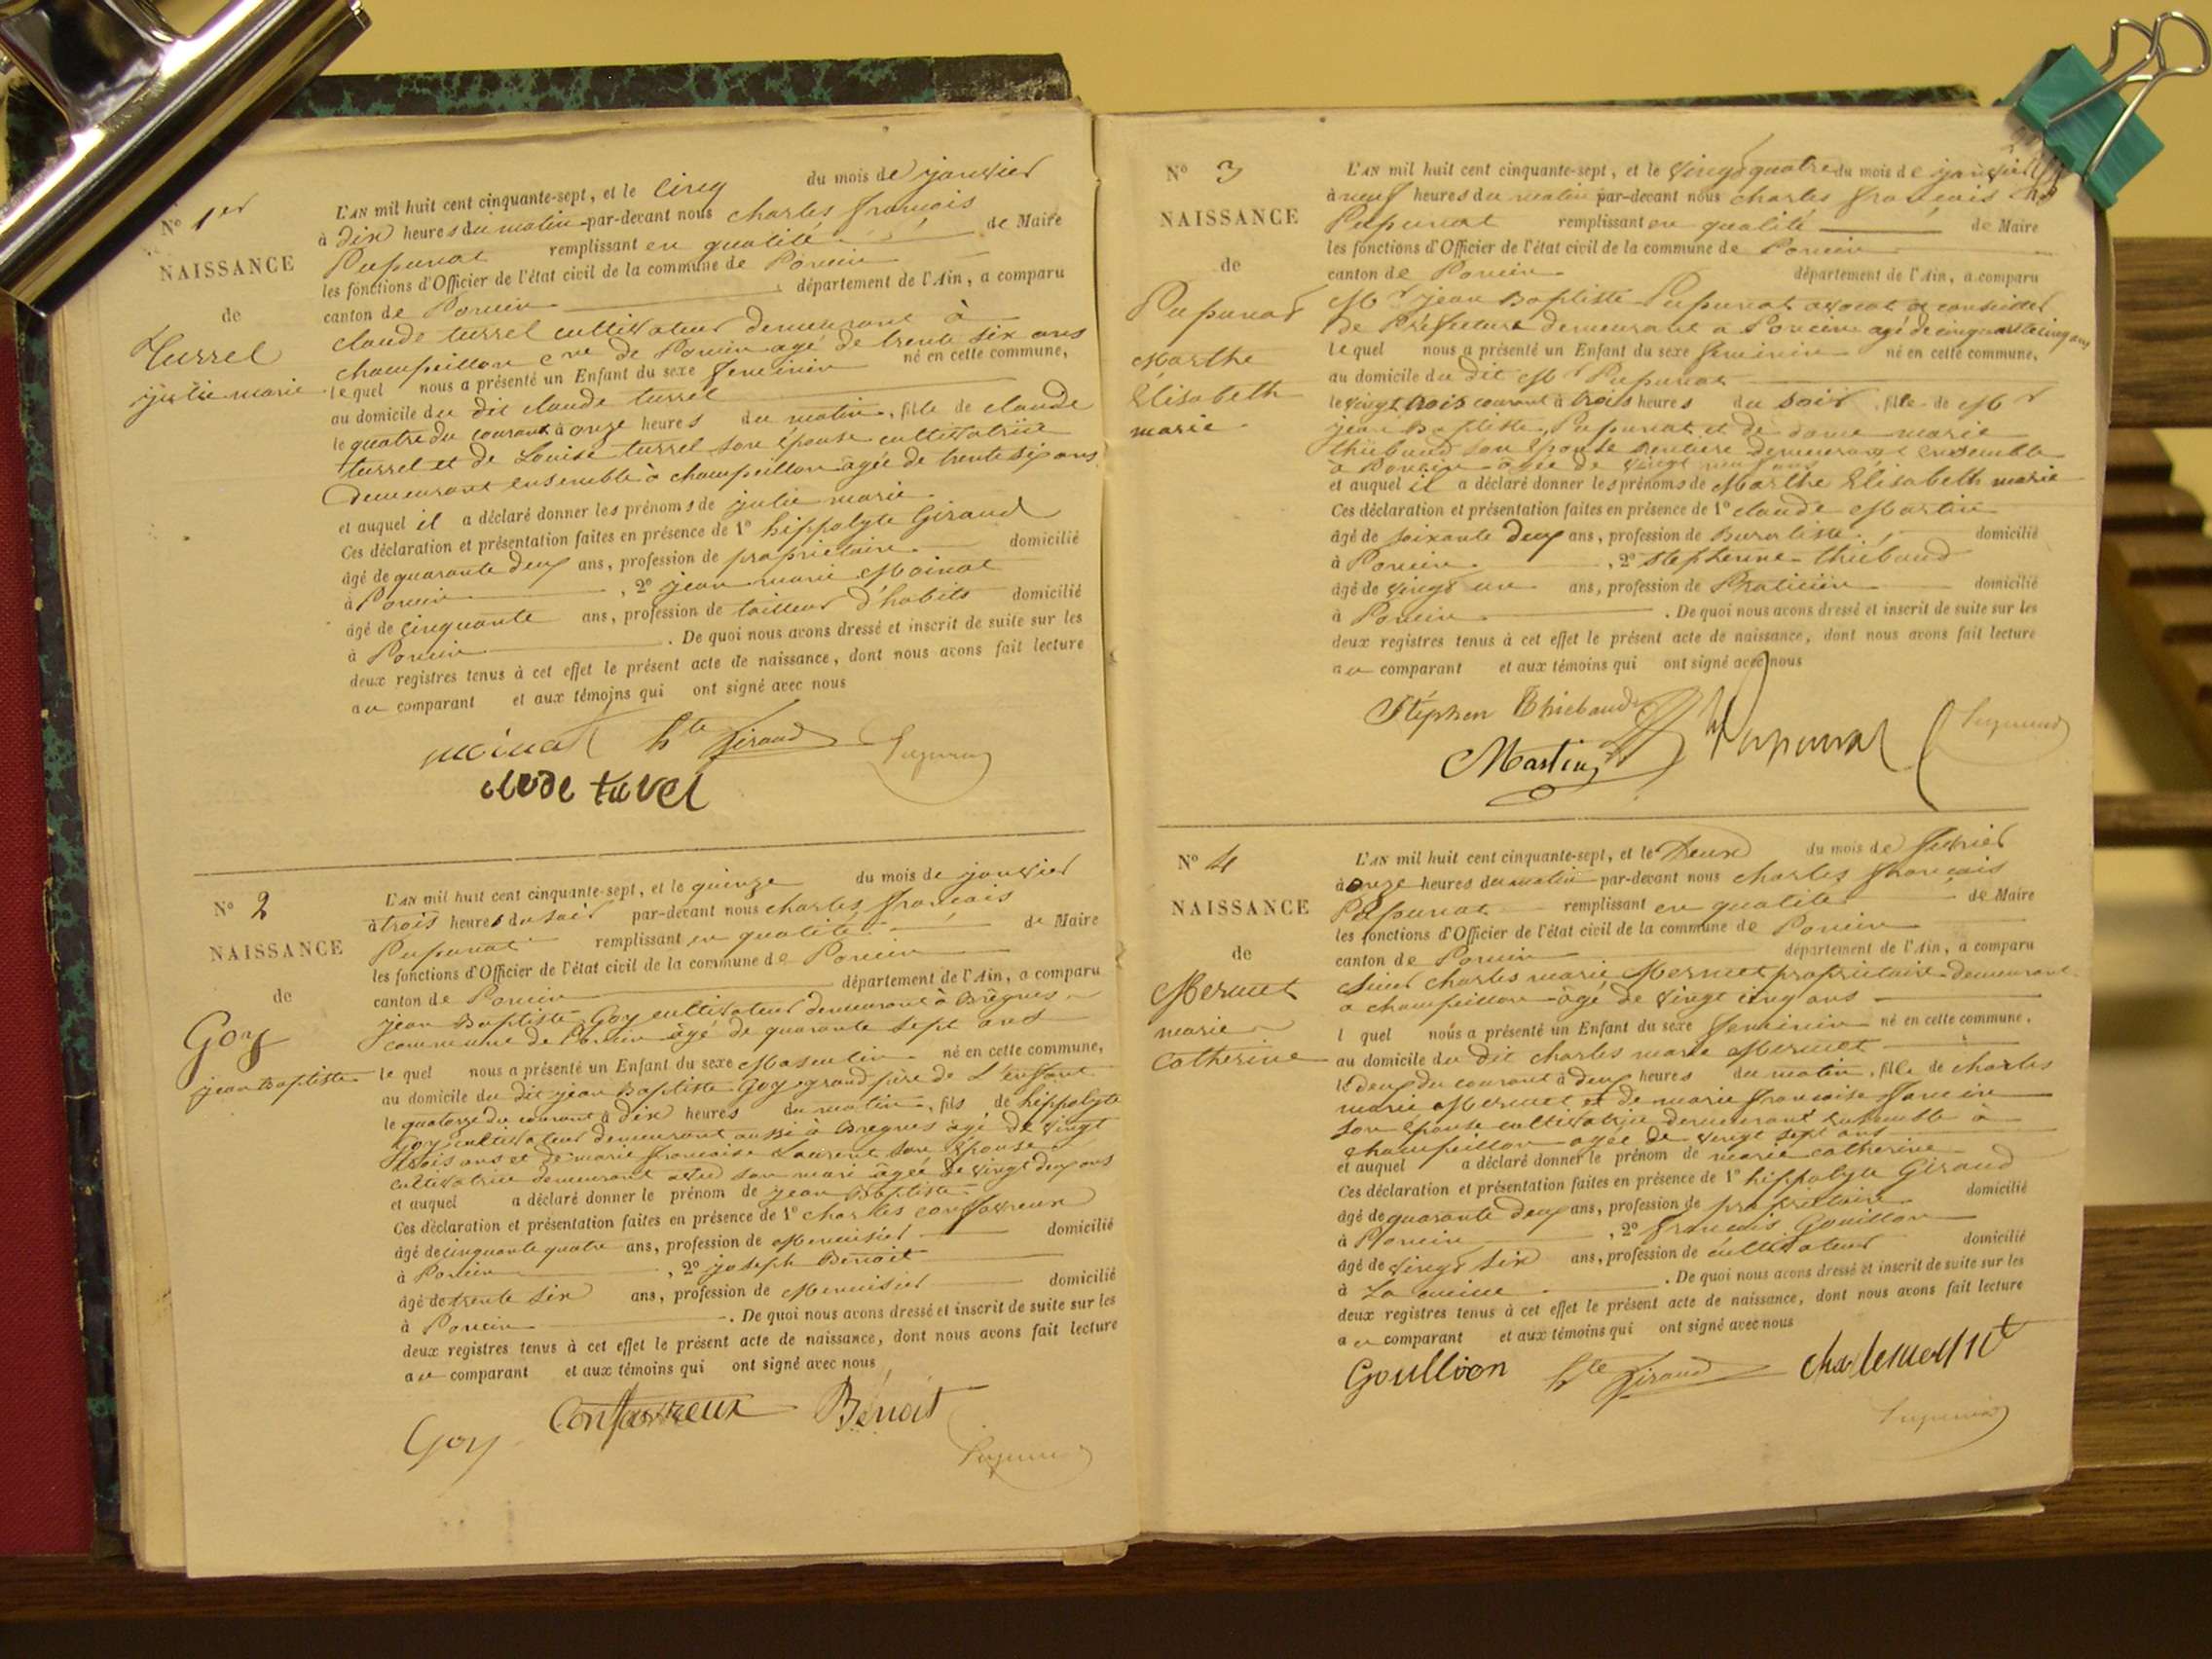 N° 1er
NAISSANCE
de
Turrel
julie marie
L'AN mil huit cent cinquante-sept, et le cinq du mois de janvier
à dix heures du matin par-devant nous charles françois
Pupunat remplissant en qualité de Maire
les fonctions d'Officier de l'état civil de la commune de Poncin
canton de Poncin département de l'Ain, a comparu
claude turrel cultivateur demeurant à
champeillon cne de Poncin agé de trente six ans
lequel nous a présenté un Enfant du sexe feminin né en cette commune,
au domicile du dit claude turrel
le quatre du courant à onze heures du matin, fille de claude
turrel et de Louise turrel son épouse cultivatrice
demeurant ensemble à champeillon agée de trente six ans
et auquel il a déclaré donner les prénoms de julie marie
Ces déclaration et présentation faites en présence de 1° hippolyte Giraud
âgé de quarante deux ans, profession de proprietaire domicilié
à Poncin, 2° jean marie Moinat
âgé de cinquante ans, profession de tailleur d'habits domicilié
à Poncin. De quoi nous avons dressé et inscrit de suite sur les
deux registres tenus à cet effet le présent acte de naissance, dont nous avons fait lecture
au comparant et aux témoins qui ont signé avec nous
moinat hte Giraud Pupunat
N° 2
NAISSANCE
de
Goy
jean Baptiste
L'AN mil huit cent cinquante-sept, et le quinze du mois de janvier
à trois heures du soir par-devant nous charles françois
Pupunat remplissant en qualité de Maire
les fonctions d'Officier de l'état civil de la commune de Poncin
canton de Poncin département de l'Ain, a comparu
jean Baptiste Goy cultivateur demeurant à Brègnes
commune de Poncin âgé de quarante sept ans
le quel nous a présenté un Enfant du sexe Masculin né en cette commune,
au domicile du dit jean Baptiste Goy grand père de L'enfant
le quatorze du courant à dix heures du matin, fils de hippolyte
Goy cultivateur demeurant aussi à Bregnes agé de vingt
trois ans et de marie françoise Laurent son épouse
cultivatrice demeurant avec son mari âgée de vingt deux ans
et auquel a déclaré donner le prénom de jean Baptiste
Ces déclaration et présentation faites en présence de 1° charles confavreux
âgé de cinquante quatre ans, profession de Menuisier domicilié
à Poncin, 2° joseph Benoit
âgé de trente six ans, profession de Menuisier domicilié
à Poncin. De quoi nous avons dressé et inscrit de suite sur les
deux registres tenus à cet effet le présent acte de naissance, dont nous avons fait lecture
au comparant et aux témoins qui ont signé avec nous
Goy Confavreux Bénoit Pupunat
N° 3
NAISSANCE
de
Pupunat
Marthe
Elisabeth
marie
L'AN mil huit cent cinquante-sept, et le vingt quatre du mois de janvier
à neuf heures du matin par-devant nous charles françois
Pupunat remplissant en qualité de Maire
les fonctions d'Officier de l'état civil de la commune de Poncin
canton de Poncin département de l'Ain, a comparu
Mr jean Baptiste Pupunat avocat et conseiller
de Préfecture demeurant a Poncin agé de cinquante cinq ans
lequel nous a présenté un Enfant du sexe feminin né en cette commune,
au domicile du dit Mr Pupunat
le vingt trois courant à trois heures du soir, fille de Mr
jean Baptiste Pupunat et de dame marie
thiébaud son épouse rentière demeurant ensemble
à Poncin agée de vingt neuf ans
et auquel il a déclaré donner les prénoms de Marthe Elisabeth marie
Ces déclaration et présentation faites en présence de 1° claude Martin
âgé de soixante deux ans, profession de Buraliste domicilié
à Poncin, 2° thiébaud
âgé de vingt un ans, profession de Praticien domicilié
à Poncin. De quoi nous avons dressé et inscrit de suite sur les
deux registres tenus à cet effet le présent acte de naissance, dont nous avons fait lecture
au comparant et aux témoins qui ont signé avec nous
Stéphen Thiébaud Pupunat Pupunat
Martin
N° 4
NAISSANCE
de
Mermet
marie
Catherine
L'AN mil huit cent cinquante-sept, et le Deux du mois de fevrier
à onze heures du matin par-devant nous charles françois
Pupunat remplissant en qualité de Maire
les fonctions d'Officier de l'état civil de la commune de Poncin
canton de Poncin département de l'Ain, a comparu
Sieur charles marie Mermet propriétaire demeurant
a champeillon âgé de vingt cinq ans
l quel nous a présenté un Enfant du sexe feminin né en cette commune,
au domicile du dit charles marie Mermet
le deux du courant à deux heures du matin, fille de charles
marie Mermet et de marie françoise
son épouse cultivatrice demeurant ensemble à
champeillon agée de vingt sept ans
et auquel a déclaré donner le prénom de marie catherine
Ces déclaration et présentation faites en présence de 1° hippolyte Giraud
âgé de quarante deux ans, profession de propriétaire domicilié
à Poncin, 2° françois Gouillon
âgé de vingt six ans, profession de cultivateur domicilié
à La cueille. De quoi nous avons dressé et inscrit de suite sur les
deux registres tenus à cet effet le présent acte de naissance, dont nous avons fait lecture
au comparant et aux témoins qui ont signé avec nous
Goullion hte Giraud
Pupunat